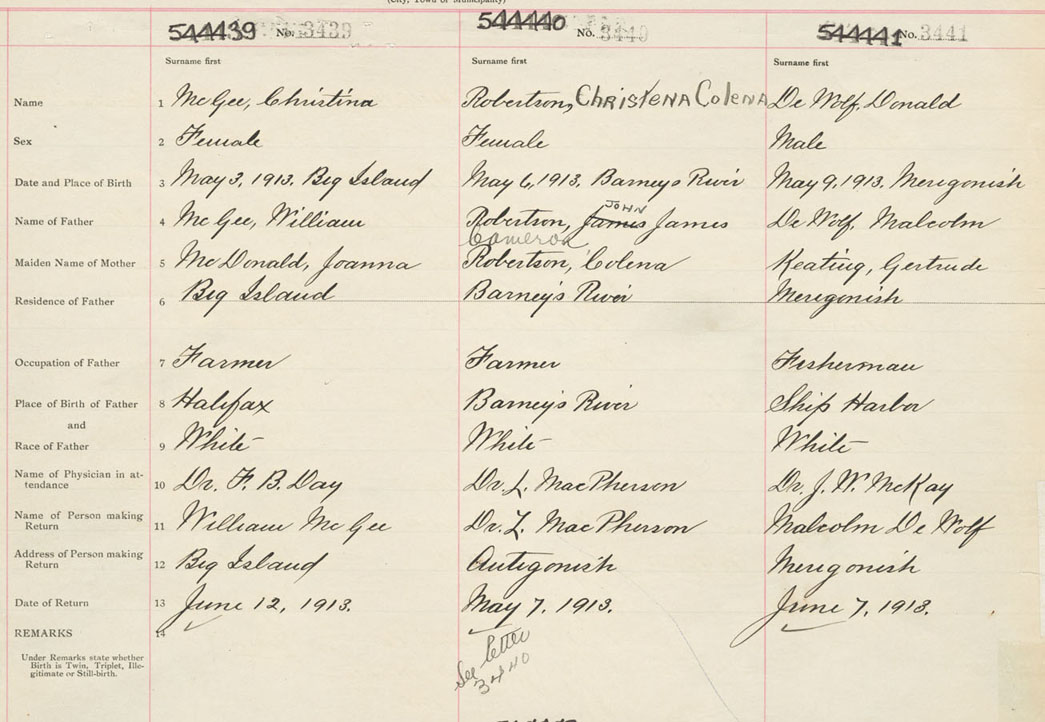 (City, Town or Municipality)
544439 No. 3439 544440 No. 3440 544441 No. 3441
Surname first Surname first Surname first
Name 1 McGee, Christina Robertson, Christena Colena De Wolf, Donald
Sex 2 Female Female Male
Date and Place of Birth 3 May 3, 1913. Big Island May 6, 1913, Barneys River May 9, 1913, Merigonish
JOHN
Name of Father 4 McGee, William Robertson, James James De Wolf, Malcolm
Cameron
Maiden Name of Mother 5 McDonald, Joanna Robertson, Colena Keating, Gertrude
Residence of Father 6 Big Island Barney's River Merigonish
Occupation of Father 7 Farmer Farmer Fisherman
Place of Birth of Father 8 Halifax Barney's River Ship Harbor
and
Race of Father 9 White White White
Name of Physician in at-
tendance 10 Dr. F. B. Day Dr. L. MacPherson Dr. J. W. McKay
Name of Person making
Return 11 William McGee Dr. L. MacPherson Malcolm De Wolf
Address of Person making
Return 12 Big Island Antigonish Merigonish
Date of Return 13 June 12, 1913. May 7, 1913. June 7, 1913.
REMARKS 14
See letter
3440
Under Remarks state whether
Birth is Twin, Triplet, Ille-
gitimate or Still-birth.